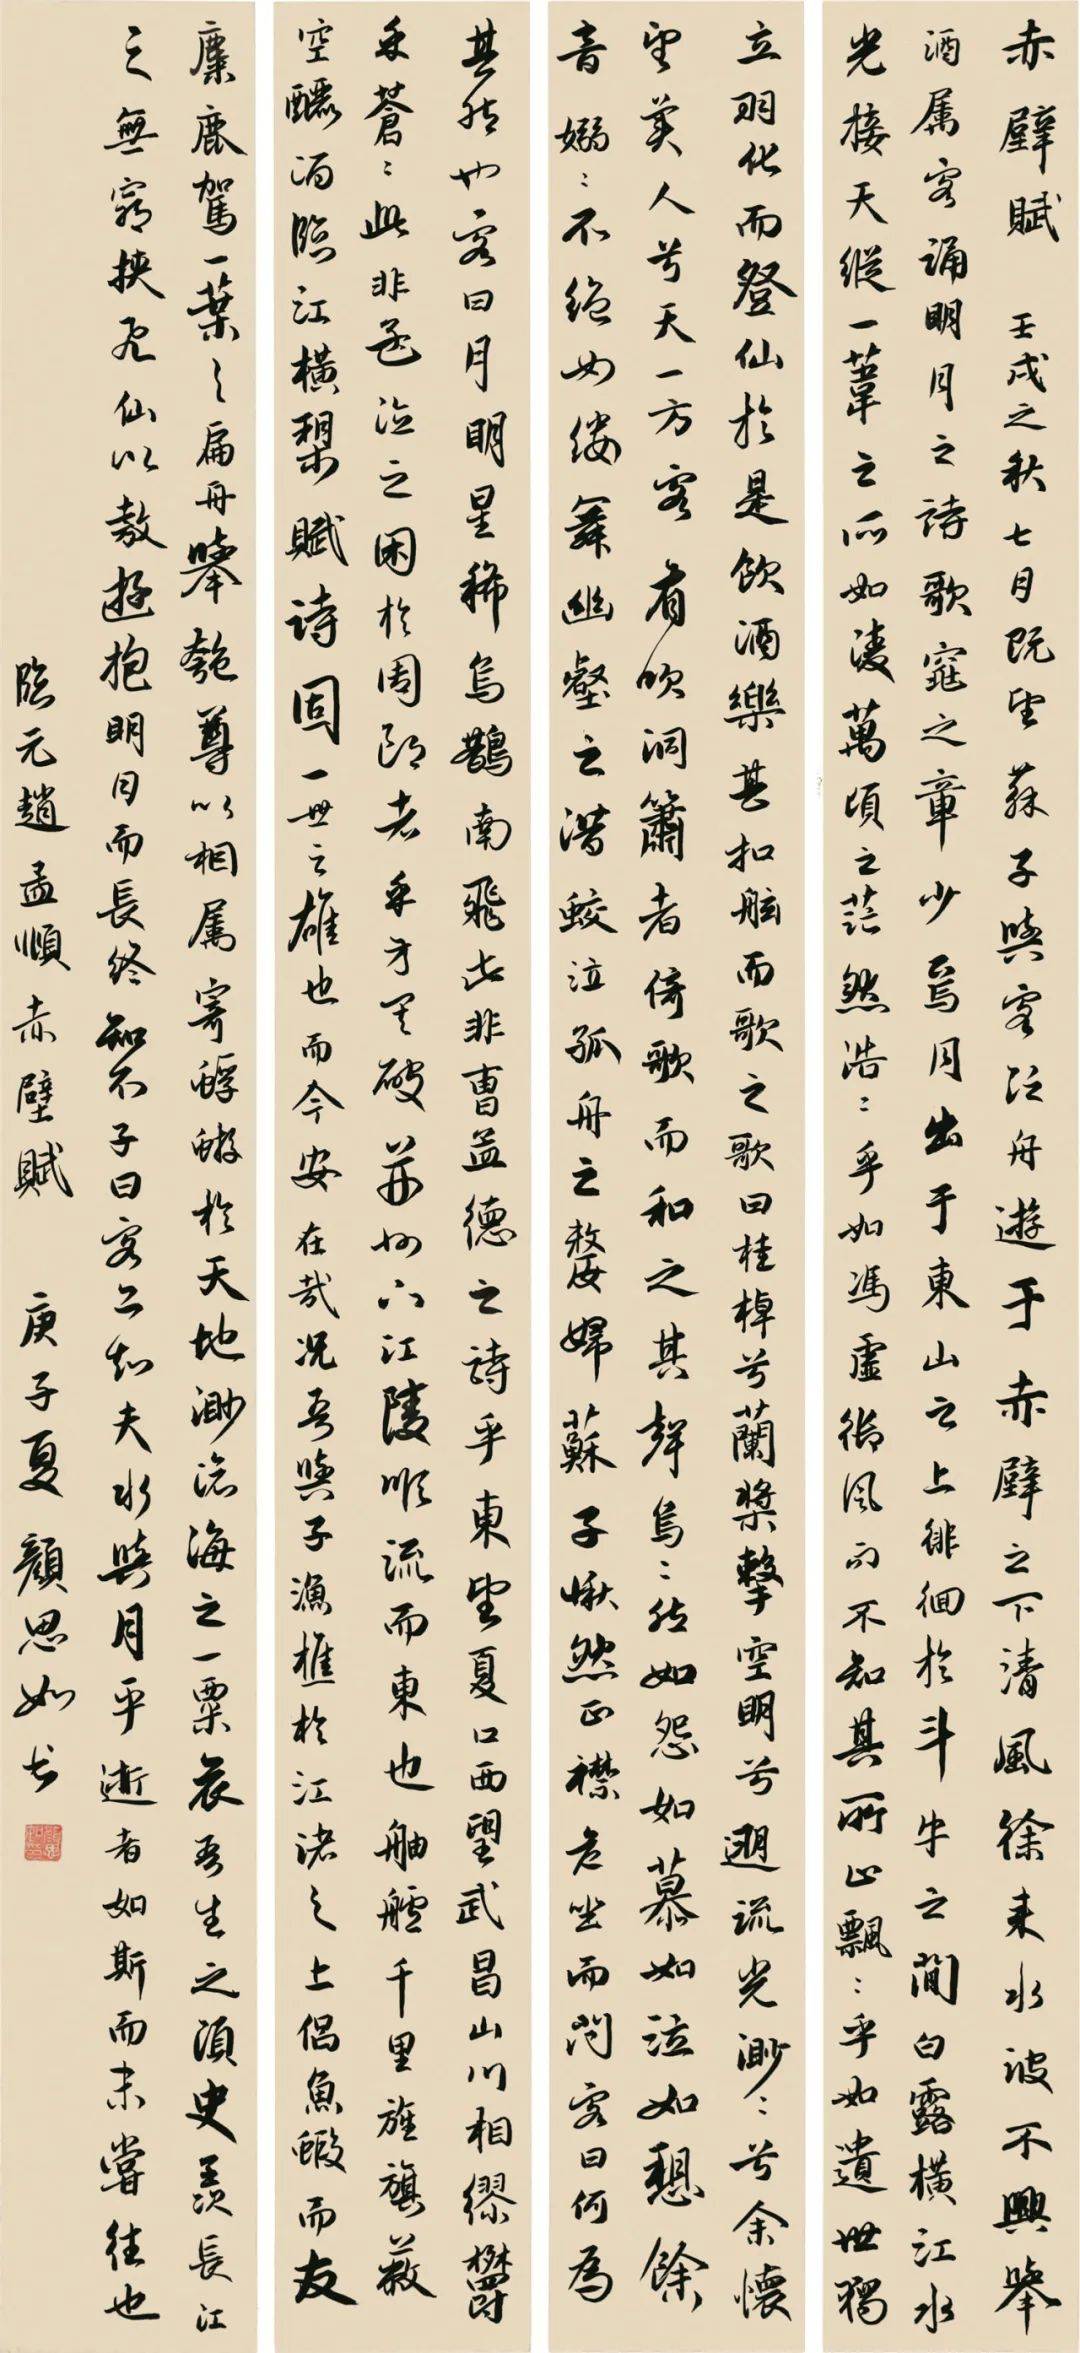 赤壁賦 壬戌之秋七月既望蘇子與客泛舟遊于赤壁之下清風徐来水波不興舉
酒属客誦明月之詩歌窕之章少焉月出于東山之上徘徊於斗牛之間白露橫江水
光接天縱一葦之所如凌萬頃之茫然浩〻乎如馮虛御風而不知其所止飄〻乎如遺世獨
立羽化而登仙於是飲酒樂甚扣舷而歌之歌曰桂棹兮蘭槳擊空明兮遡流光渺〻兮余懷
望美人兮天一方客有吹洞簫者倚歌而和之其聲烏〻然如怨如慕如泣如愬餘
音嫋〻不絕如縷舞幽壑之潛蛟泣孤舟之嫠婦蘇子愀然正襟危坐而問客曰何為
其然也客曰月明星稀烏鵲南飛此非曹孟德之詩乎東望夏口西望武昌山川相繆鬱
乎蒼〻此非孟德之困於周郎者乎方其破荊州下江陵順流而東也舳艫千里旌旗蔽
空釃酒臨江橫槊賦詩固一世之雄也而今安在哉況吾與子漁樵於江渚之上侶魚蝦而友
麋鹿駕一葉之扁舟舉匏尊以相属寄蜉蝣於天地渺滄海之一粟哀吾生之須臾羨長江
之無窮挾飛仙以遨遊抱明月而長終知不子曰客亦知夫水與月乎逝者如斯而未嘗往也
臨元趙孟頫赤壁賦 庚子夏顏思如書